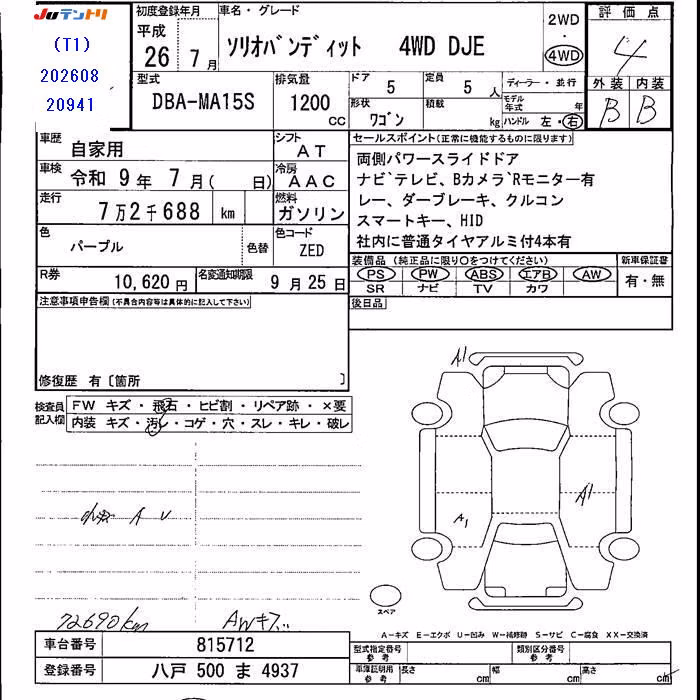 JUテントリ
(T1)
202608
20941
初度登録年月
平成
26年 7月
車名・グレード
ソリオバンディット 4WD DJE
2WD
・
4WD
評価点
4
外装 内装
B B
型式
DBA-MA15S
排気量
1200
CC
ドア
5
定員
5 人
形状
ワゴン
積載
kg
ディーラー・並行
モデル年式
年
ハンドル 左・右
車歴
自家用
シフト
AT
車検
令和 9年 7月( 日)
冷房
AAC
走行
7万2千688 km
燃料
ガソリン
色
パープル
色替
色コード
ZED
R券
10,620円
名変通知期限
9月25日
セールスポイント(正常に機能するものに限ります)
両側パワースライドドア
ナビ゛テレビ、Bカメラ゛Rモニター有
レー、ダーブレーキ、クルコン
スマートキー、HID
社内に普通タイヤアルミ付4本有
装備品(純正品に限り○をつけてください)
新車保証書
PS PW ABS エアB AW
SR ナビ TV カワ
有・無
注意事項申告欄(不具合内容等は具体的に記入して下さい)
後日品
修復歴 有〔箇所 〕
検査員記入欄
FW キズ・飛石・ヒビ割・リペア跡・×要
内装 キズ・汚レ・コゲ・穴・スレ・キレ・破レ
A1
A1
A1
小傷 A U
72690km
AWキズ
スペア
A−キズ E−エクボ U−凹み W−補修跡 S−サビ C−腐食 XX−交換済
車台番号
815712
登録番号
八戸 500 ま 4937
型式指定番号
参考
類別区分番号
参考
車課証明用
参考
長さ cm
幅 cm
高さ cm